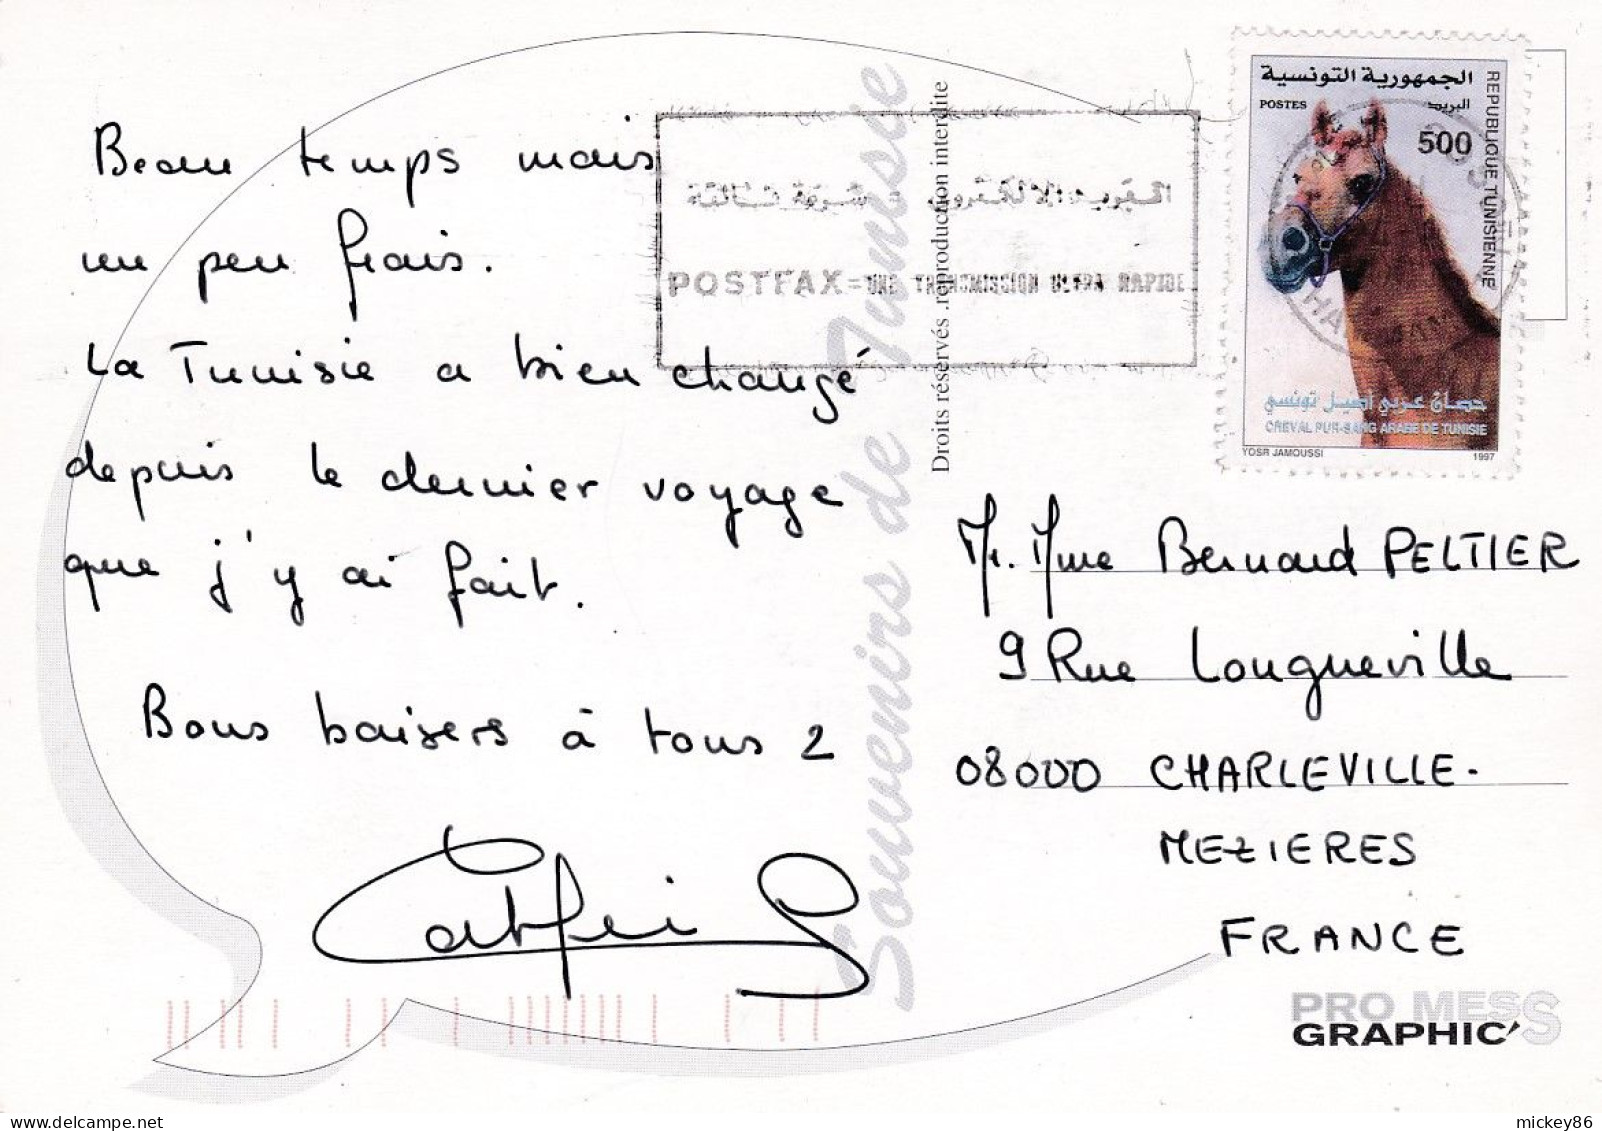 Beau temps mais
un peu frais.
La Tunisie a bien changé
depuis le dernier voyage
que j'y ai fait.
Bons baisers à tous 2
Souvenirs de Tunisie
Droits réservés .reproduction interdite
POSTFAX=UNE TRANSMISSION ULTRA RAPIDE
الجمهورية التونسية
POSTES
البريد
500
REPUBLIQUE TUNISIENNE
حصان عربي أصيل تونسي
CHEVAL PUR-SANG ARABE DE TUNISIE
YOSR JAMOUSSI
1997
Mr. Mme Bernard PELTIER
9 Rue Longueville
08000 CHARLEVILLE-
MEZIERES
FRANCE
PRO MESS
GRAPHIC'S
delcampe.net
mickey86